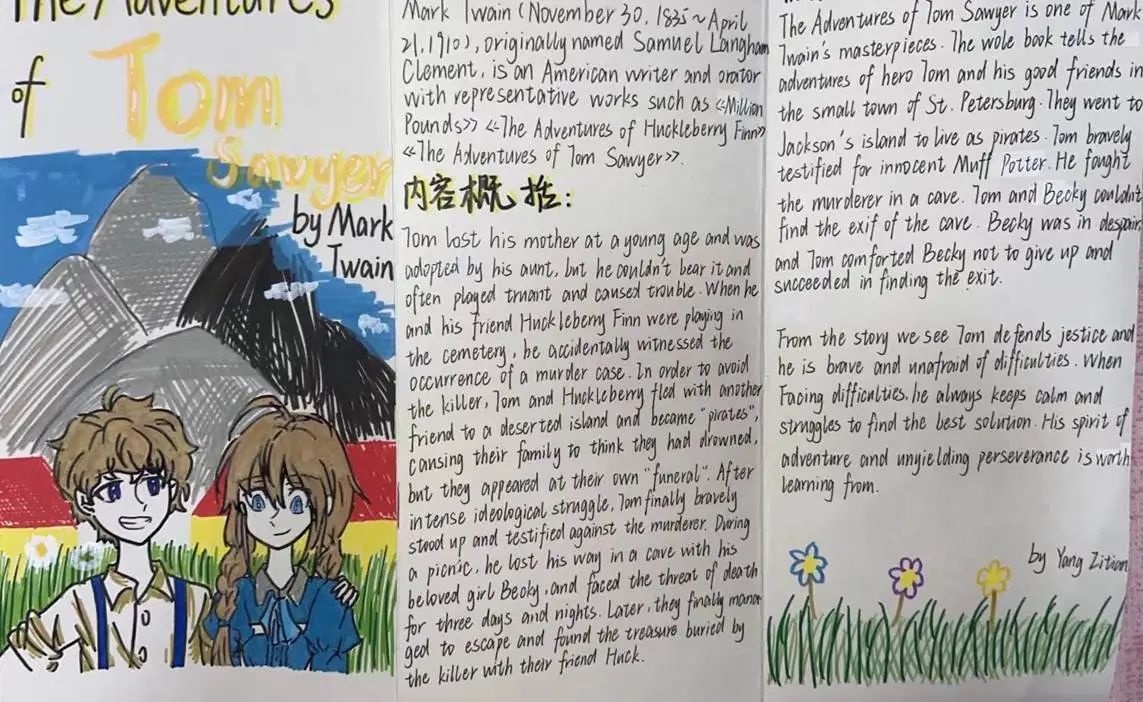 The Adventures
of Tom
Sawyer
by Mark
Twain
Mark Twain (November 30, 1835~April
21, 1910), originally named Samuel Langham
Clement, is an American writer and orator
with representative works such as «Million
Pounds» «The Adventures of Huckleberry Finn»
«The Adventures of Tom Sawyer».
内容概括:
Tom lost his mother at a young age and was
adopted by his aunt, but he couldn't bear it and
often played truant and caused trouble. When he
and his friend Huckleberry Finn were playing in
the cemetery, he accidentally witnessed the
occurrence of a murder case. In order to avoid
the killer, Tom and Huckleberry fled with another
friend to a deserted island and became "pirates",
causing their family to think they had drowned,
but they appeared at their own "funeral". After
intense ideological struggle, Tom finally bravely
stood up and testified against the murderer. During
a picnic, he lost his way in a cave with his
beloved girl Becky, and faced the threat of death
for three days and nights. Later, they finally mana
ged to escape and found the treasure buried by
the killer with their friend Huck.
The Adventures of Tom Sawyer is one of Mark
Twain's masterpieces. The wole book tells the
adventures of hero Tom and his good friends in
the small town of St. Petersburg. They went to
Jackson's island to live as pirates. Tom bravely
testified for innocent Muff Potter. He fought
the murderer in a cave. Tom and Becky couldn't
find the exif of the cave. Becky was in despair,
and Tom comforted Becky not to give up and
succeeded in finding the exit.
From the story we see Tom defends jestice and
he is brave and unafraid of difficulties. When
Facing difficulties, he always keeps calm and
struggles to find the best solution. His spirit of
adventure and unyielding perseverance is worth
learning from.
by Yang Zitian